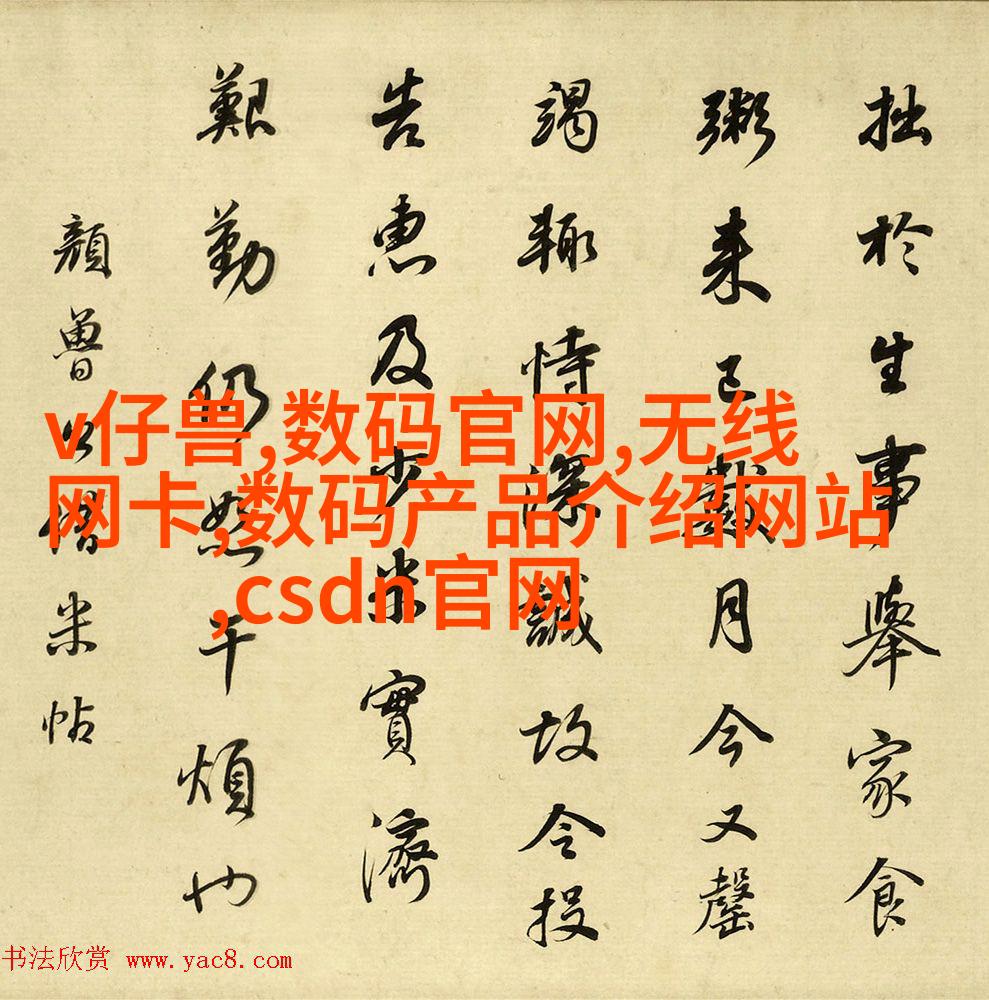 拙於生事舉家食
粥来已數月今又罄
竭輙恃深誠故令投
告惠及少米實濟
艱勤仍恕干煩也
顔魯公借米帖
v仔兽,数码官网,无线
网卡,数码产品介绍网站
,csdn官网
书法欣赏 www.yac8.com